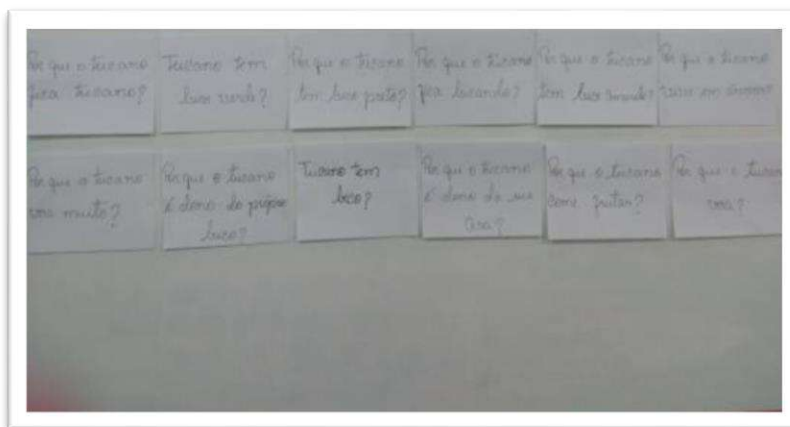 Por que o tucano
fica tucano?
Tucano tem
bico verde?
Por que o tucano
tem bico preto?
Por que o tucano
fica bicando?
Por que o tucano
tem bico
Por que o tucano
em
Por que o tucano
voa muito?
Por que o tucano
é dono do próprio
bico?
Tucano tem
bico?
Por que o tucano
é dono da sua
asa?
Por que o tucano
come frutas?
Por que o tucano
voa?